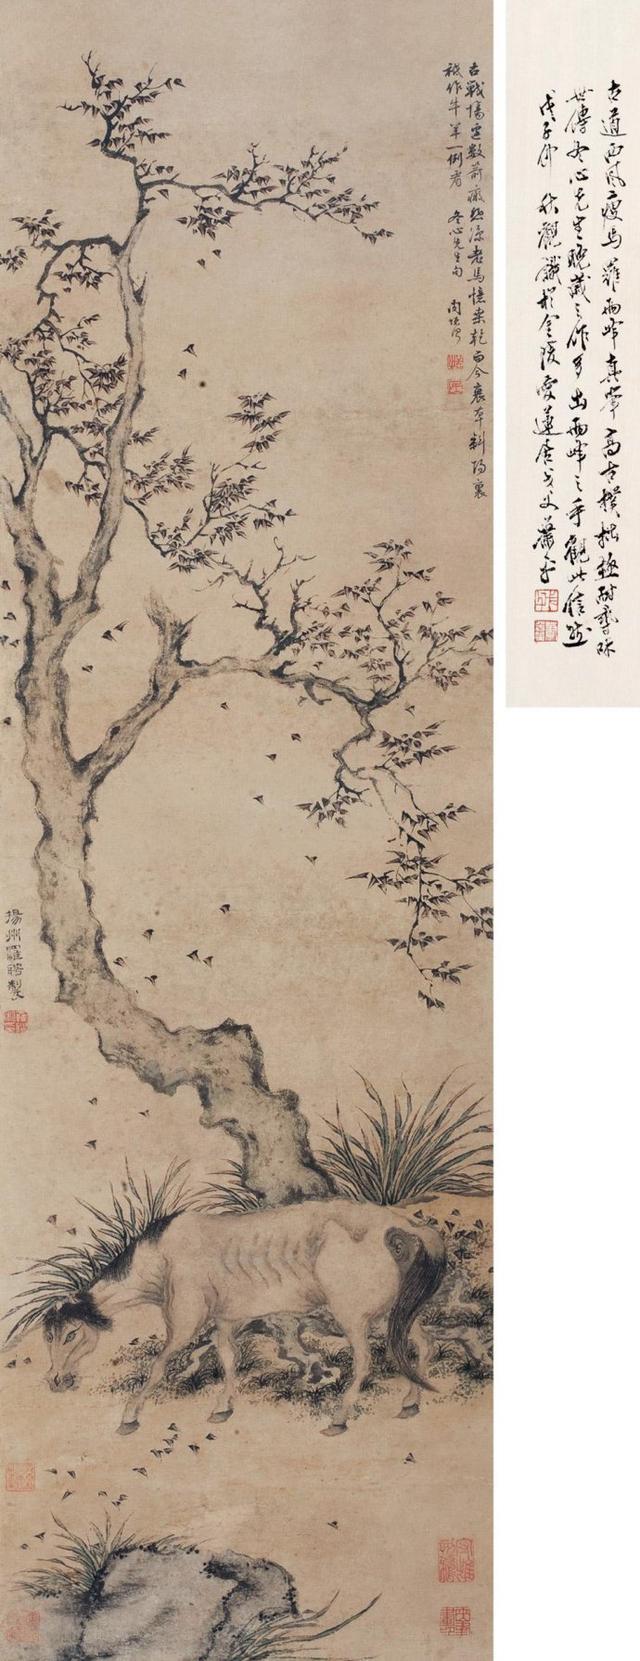 古戰場豆數箭瘢悲涼老馬憶桑乾而今衰草斜陽裏
秪作牛羊一例看 冬心先生句
揚州羅聘製
古道西風瘦馬羅兩峰真筆高古樸拙極耐尋味
世傳冬心先生晚歲之作多出兩峰之手觀此信然
戊子仲秋觀識於金陵愛蓮居戈父蕭平